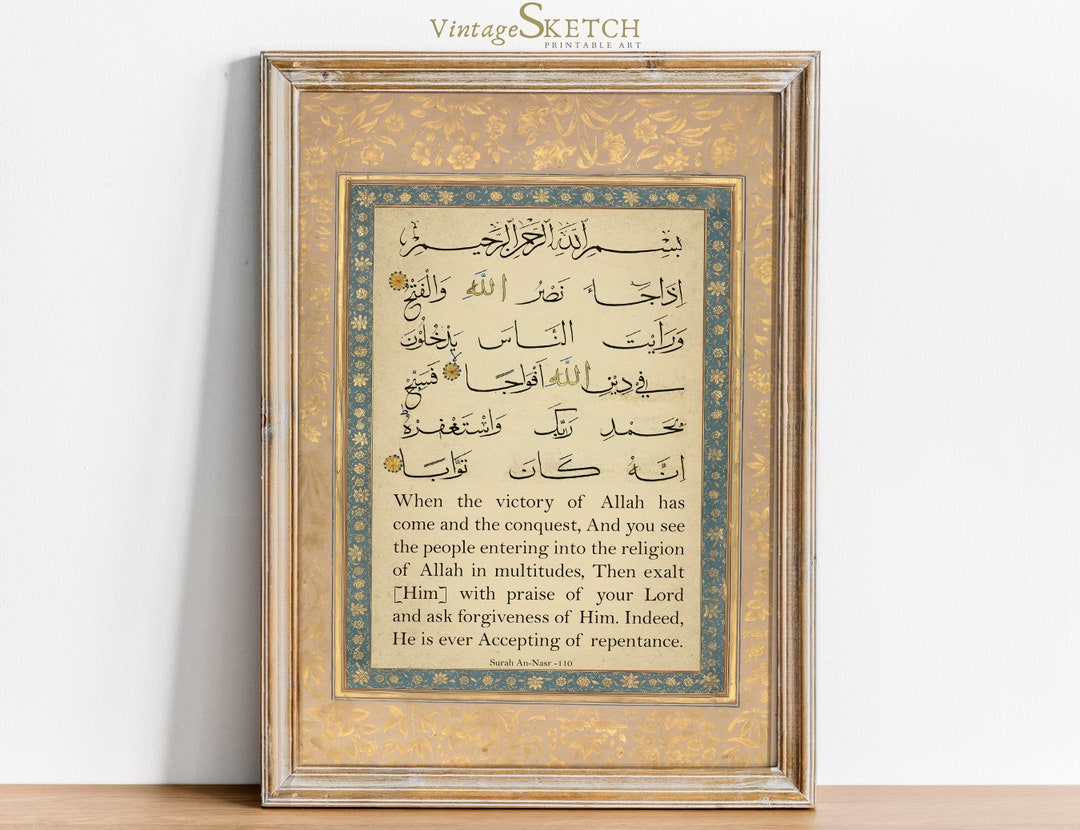 VintageSKETCH
PRINTABLE ART
بِسْمِ اللهِ الرَّحْمٰنِ الرَّحِيْمِ
اِذَا جَاءَ نَصْرُ اللّٰهِ وَالْفَتْحُ
وَرَاَيْتَ النَّاسَ يَدْخُلُوْنَ
فِيْ دِيْنِ اللّٰهِ اَفْوَاجًا فَسَبِّحْ
بِحَمْدِ رَبِّكَ وَاسْتَغْفِرْهُ
اِنَّهُ كَانَ تَوَّابًا
When the victory of Allah has
come and the conquest, And you see
the people entering into the religion
of Allah in multitudes, Then exalt
[Him] with praise of your Lord
and ask forgiveness of Him. Indeed,
He is ever Accepting of repentance.
Surah An-Nasr -110